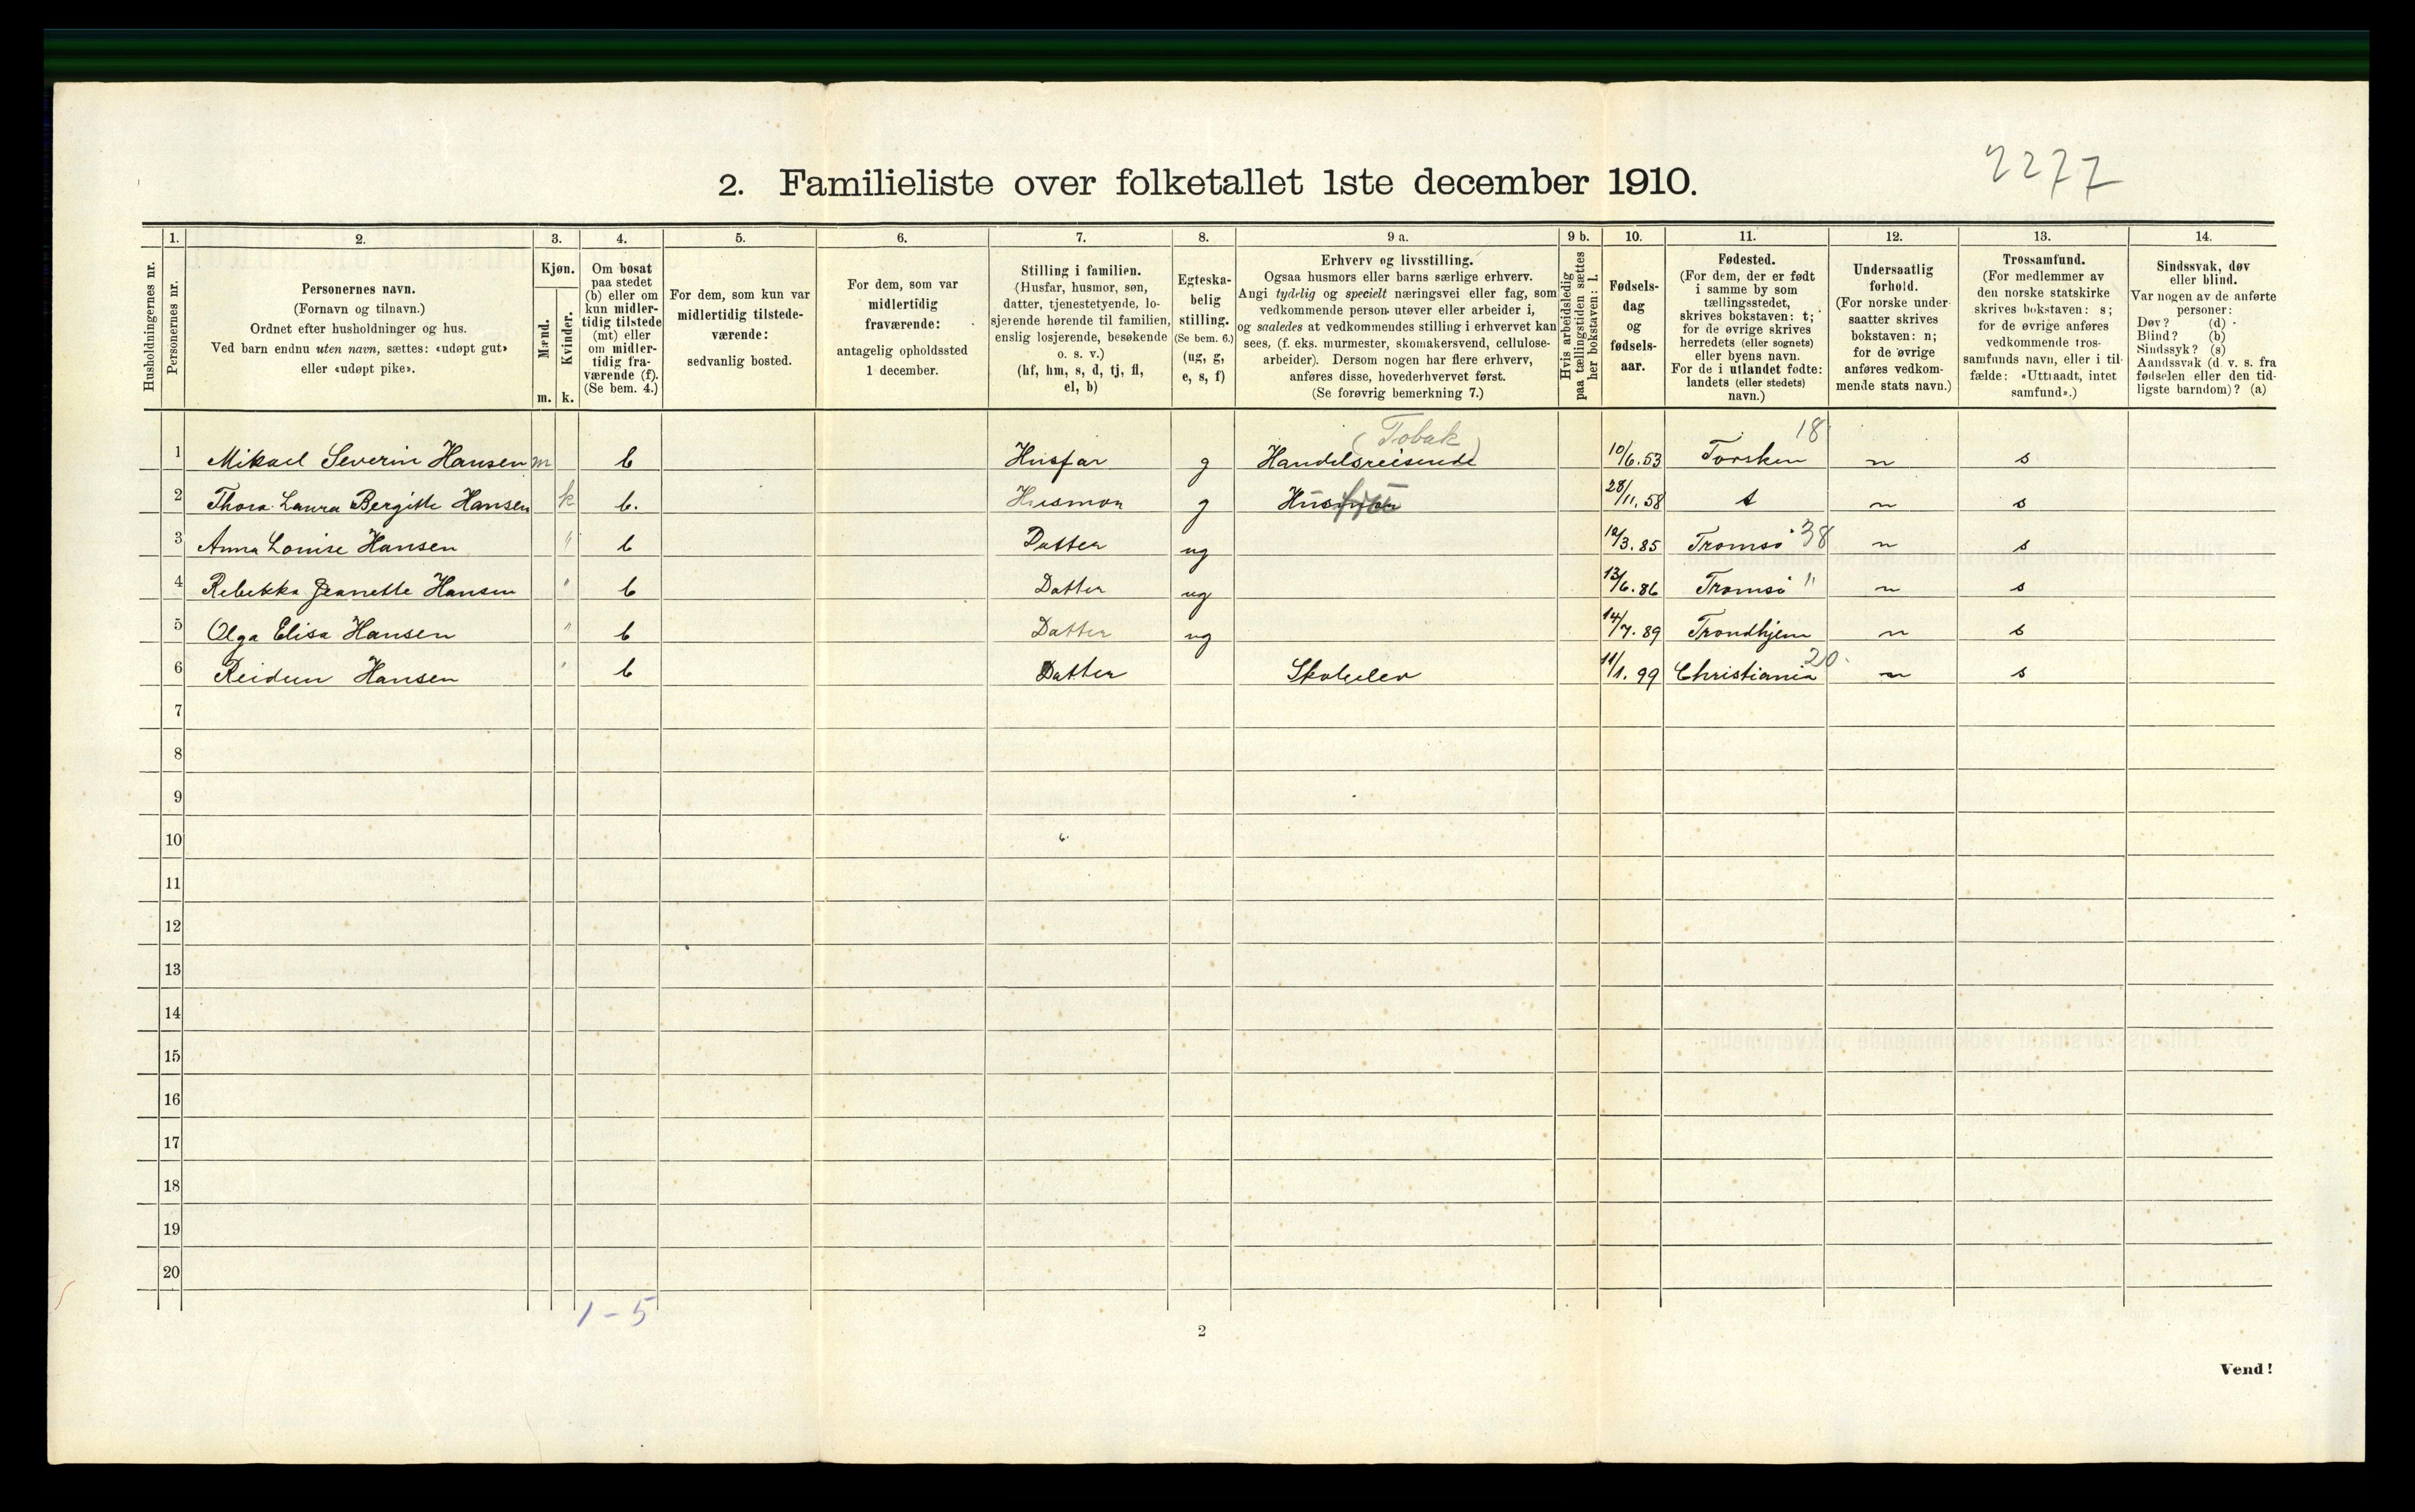 2277
2. Familieliste over folketallet 1ste december 1910.
1. 2. 3. 4. 5. 6. 7. 8. 9 a. 9 b. 10. 11. 12. 13. 14.
Husholdningernes nr.
Personernes nr.
Personernes navn.
(Fornavn og tilnavn.)
Ordnet efter husholdninger og hus.
Ved barn endnu uten navn, sættes: «udøpt gut»
eller «udøpt pike».
Kjøn.
Mænd.
Kvinder.
m. k.
Om bosat
paa stedet
(b) eller om
kun midler-
tidig tilstede
(mt) eller
om midler-
tidig fra-
værende (f).
(Se bem. 4.)
For dem, som kun var
midlertidig tilstede-
værende:
sedvanlig bosted.
For dem, som var
midlertidig
fraværende:
antagelig opholdssted
1 december.
Stilling i familien.
(Husfar, husmor, søn,
datter, tjenestetyende, lo-
sjerende hørende til familien,
enslig losjerende, besøkende
o. s. v.)
(hf, hm, s, d, tj, fl,
el, b)
Egteska-
belig
stilling.
(Se bem. 6.)
(ug, g,
e, s, f)
Erhverv og livsstilling.
Ogsaa husmors eller barns særlige erhverv.
Angi tydelig og specielt næringsvei eller fag, som
vedkommende person utøver eller arbeider i,
og saaledes at vedkommendes stilling i erhvervet kan
sees, (f. eks. murmester, skomakersvend, cellulose-
arbeider). Dersom nogen har flere erhverv,
anføres disse, hovederhvervet først.
(Se forøvrig bemerkning 7.)
Hvis arbeidsledig
paa tællingstiden sættes
her bokstaven: l.
Fødsels-
dag
og
fødsels-
aar.
Fødested.
(For dem, der er født
i samme by som
tællingsstedet,
skrives bokstaven: t;
for de øvrige skrives
herredets (eller sognets)
eller byens navn.
For de i utlandet fødte:
landets (eller stedets)
navn.)
Undersaatlig
forhold.
(For norske under-
saatter skrives
bokstaven: n;
for de øvrige
anføres vedkom-
mende stats navn.)
Trossamfund.
(For medlemmer av
den norske statskirke
skrives bokstaven: s;
for de øvrige anføres
vedkommende tros-
samfunds navn, eller i til-
fælde: «Uttraadt, intet
samfund».)
Sindssvak, døv
eller blind.
Var nogen av de anførte
personer:
Døv? (d)
Blind? (b)
Sindssyk? (s)
Aandssvak (d. v. s. fra
fødselen eller den tid-
ligste barndom)? (a)
(Tobak) 18
1 Mikael Severin Hansen m b Husfar g Handelsreisende 10/6.53 Torsken n s
2 Thora Laura Bergitte Hansen k b. Husmor g 28/11.58 t n s
3 Anna Louise Hansen " b Datter ug 12/3.85 Tromsø 38 n s
4 Rebekka Jeanette Hansen " b Datter ug 13/6.86 Tromsø " n s
5 Olga Elisa Hansen " b Datter ug 14/7.89 Trondhjem n s
6 Reidun Hansen " b Datter Skoleelev 11/1.99 Christiania 20. n s
7
8
9
10
11
12
13
14
15
16
17
18
19
20
1 - 5
2
Vend!